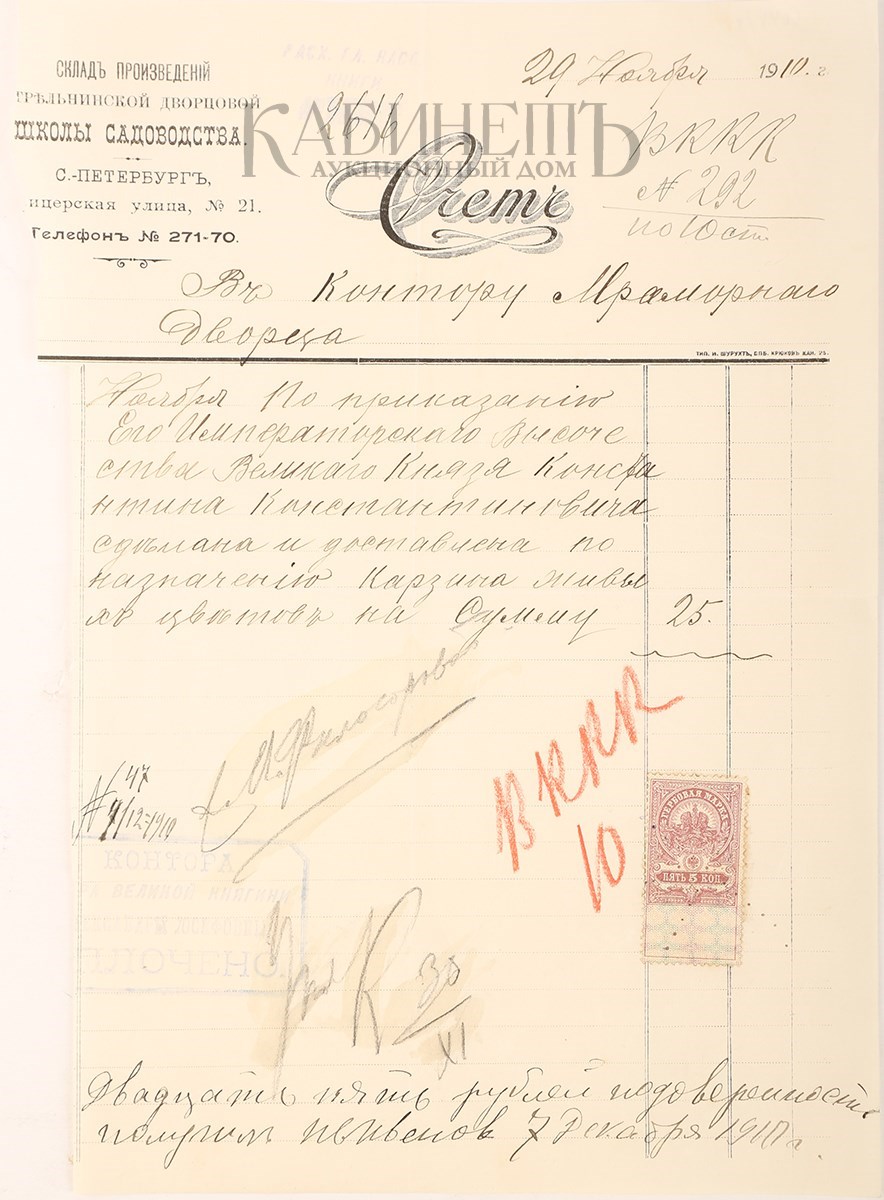 СКЛАДЪ ПРОИЗВЕДЕНІЙ
ТРѢЛЬНИНСКОЙ ДВОРЦОВОЙ
ШКОЛЫ САДОВОДСТВА.
С.-ПЕТЕРБУРГЪ,
ицерская улица, № 21.
Телефонъ № 271-70.
29 Ноября 1910. г
2616
КАБИНЕТЪ
АУКЦИОННЫЙ ДОМ
Счетъ
ВККК
№ 292
по 10 ст.
Въ Контору Мраморнаго
Дворца
ТИП. И. ШУРУХТЪ, СПБ. КРЮКОВЪ КАН. 25.
Ноября По приказанію
Его Императорскаго Высоче
ства Великаго Князя Конста
нтина Константиновича
сдѣлана и доставлена по
назначенію Карзина живы
хъ цвѣтовъ на Сумму 25.
ВККК
10
№ 47
7/12-1910
ГЕРБОВАЯ МАРКА
ПЯТЬ 5 КОП.
КОНТОРА
ВЕЛИКОЙ КНЯГИНИ
К 30
XI
Двадцать пять рублей подоверенность
получилъ 7 Декабря 1910 г